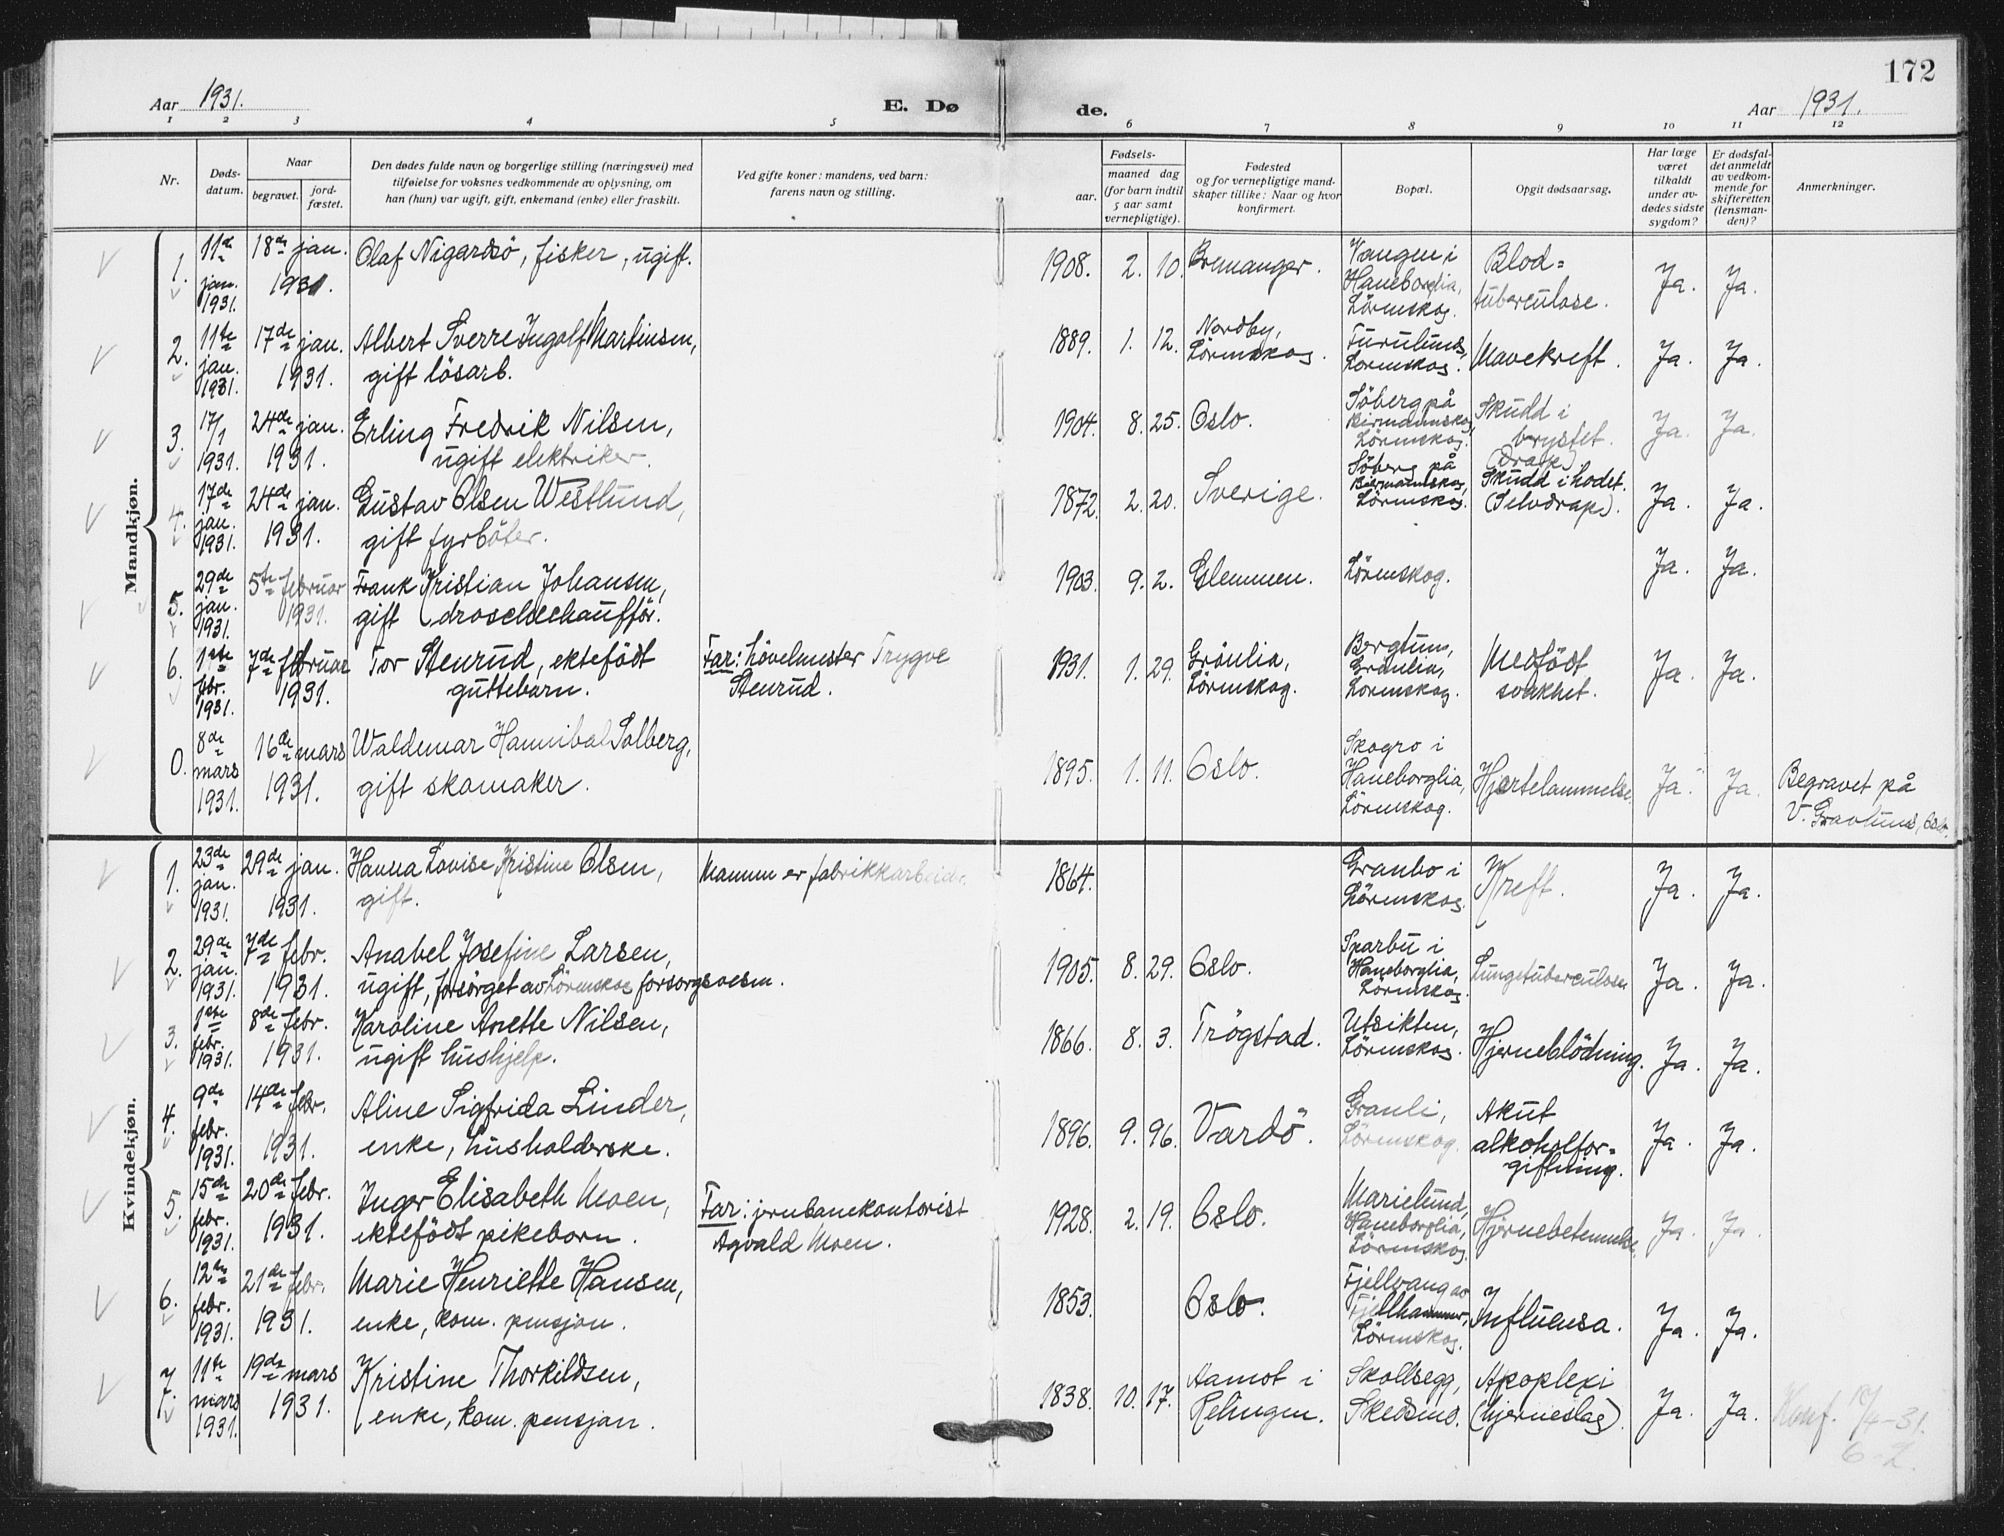 172
Aar 1931. E. Dø de. Aar 1931.
1 2 3 4 5 6 7 8 9 10 11 12
Nr.
Døds-
datum.
Naar
begravet.
jord-
fæstet.
Den dødes fulde navn og borgerlige stilling (næringsvei) med
tilføielse for voksnes vedkommende av oplysning, om
han (hun) var ugift, gift, enkemand (enke) eller fraskilt.
Ved gifte koner: mandens, ved barn:
farens navn og stilling.
Fødsels-
aar.
maaned dag
(for barn indtil
5 aar samt
vernepligtige).
Fødested
og for vernepligtige mand-
skaper tillike: Naar og hvor
konfirmert.
Bopæl.
Opgit dødsaarsag.
Har læge
været
tilkaldt
under av-
dødes sidste
sygdom?
Er dødsfal-
det anmeldt
av vedkom-
mende for
skifteretten
(lensman-
den)?
Anmerkninger.
Mandkjøn.
1. 11te jan. 1931. 18de jan. 1931. Olaf Nigardsö, fisker, ugift. 1908. 2. 10. Bremanger. Vangen i Haneborglia, Lörenskog. Blod=tuberculose. Ja. Ja.
2. 11te jan. 1931. 17de jan. 1931. Albert Sverre Ingolf Martinsen, gift lösarb. 1889. 1. 12. Nordby, Lörenskog. Furulund, Lörenskog. Mavekreft. Ja. Ja.
3. 17/1 1931. 24de jan. 1931. Erling Fredrik Nilsen, ugift elektriker. 1904. 8. 25. Oslo. Söberg på Lörenskog. Skudd i brystet. (Drap) Ja. Ja.
4. 17de jan. 1931. 24de jan. 1931. Gustav Olsen Westlund, gift fyrböter. 1872. 2. 20. Sverige. Söberg på Lörenskog. Skudd i hodet. (Selvdrap). Ja. Ja.
5. 29de jan. 1931. 5te februar 1931. Frank Kristian Johansen, gift droschechaufför. 1903. 9. 2. Glemmen. Lörenskog. Ja. Ja.
6. 1ste febr. 1931. 7de februar 1931. Tor Stenrud, ektefödt guttebarn. Far: hövelmester Trygve Stenrud. 1931. 1. 29. Grönlia, Lörenskog. Bergtun, Grönlia, Lorenskog. Medfödt svakhet. Ja. Ja.
0. 8de mars 1931. 16de mars 1931. Waldemar Hannibal Solberg, gift skomaker. 1895. 1. 11. Oslo. Skogro i Haneborglia, Lörenskog. Hjertelammelse. Ja. Ja. Begravet på V. Gravlund, Oslo.
Kvindekjøn.
1. 23de jan. 1931. 29de jan. 1931. Hanna Lovise Kristine Olsen, gift. Mannen er fabrikkarbeider. 1864. Granbo i Lörenskog. Kreft. Ja. Ja.
2. 29de jan. 1931. 7de febr. 1931. Anabel Josefine Larsen, ugift, forsörget av Lörenskog forsorgsvesen. 1905. 8. 29. Oslo. Snarbu i Haneborglia, Lörenskog. Lungetuberculose. Ja. Ja.
3. 1ste febr. 1931. 8de febr. 1931. Karoline Anette Nilsen, ugift hushjelp. 1866. 8. 3. Trögstad. Utsikten, Lörenskog. Hjerneblödning. Ja. Ja.
4. 9de febr. 1931. 14de febr. 1931. Aline Sigfrida Linder, enke, husholderske. 1896. 9. 96. Vardö. Granli, Lörenskog. Akut alkoholfor=giftning. Ja. Ja.
5. 15de febr. 1931. 20de febr. 1931. Inger Elisabeth Moen, ektefödt pikebarn. Far: jernbanekontorist Agvald Moen. 1928. 2. 19. Oslo. Marielund, Haneborglia, Lörenskog. Hjernebetennelse. Ja. Ja.
6. 12te febr. 1931. 21de febr. 1931. Marie Henriette Hansen, enke, kom. pensjon. 1853. Oslo. Fjellvang av Fjellhammer, Lörenskog. Influensa. Ja. Ja.
7. 11te mars 1931. 19de mars 1931. Kristine Thorkildsen, enke, kom. pensjon. 1838. 10. 17. Aamot i Rælingen. Skollsegg, Skedsmo. Apoplexi (hjerneslag). Ja. Ja. Konf. 17/4-31. 6-2.